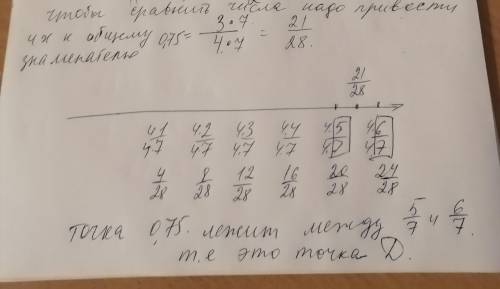 чтобы сравнить числа надо привести
их к общему 0,75 = 3•7/4•7 = 21/28.
знаменателю
21/28
4.1/4.7 4.2/4.7 4.3/4.7 4.4/4.7 4.5/4.7 4.6/4.7
4/28 8/28 12/28 16/28 20/28 24/28
точка 0,75. лежит между 5/7 и 6/7.
т.е это точка D.